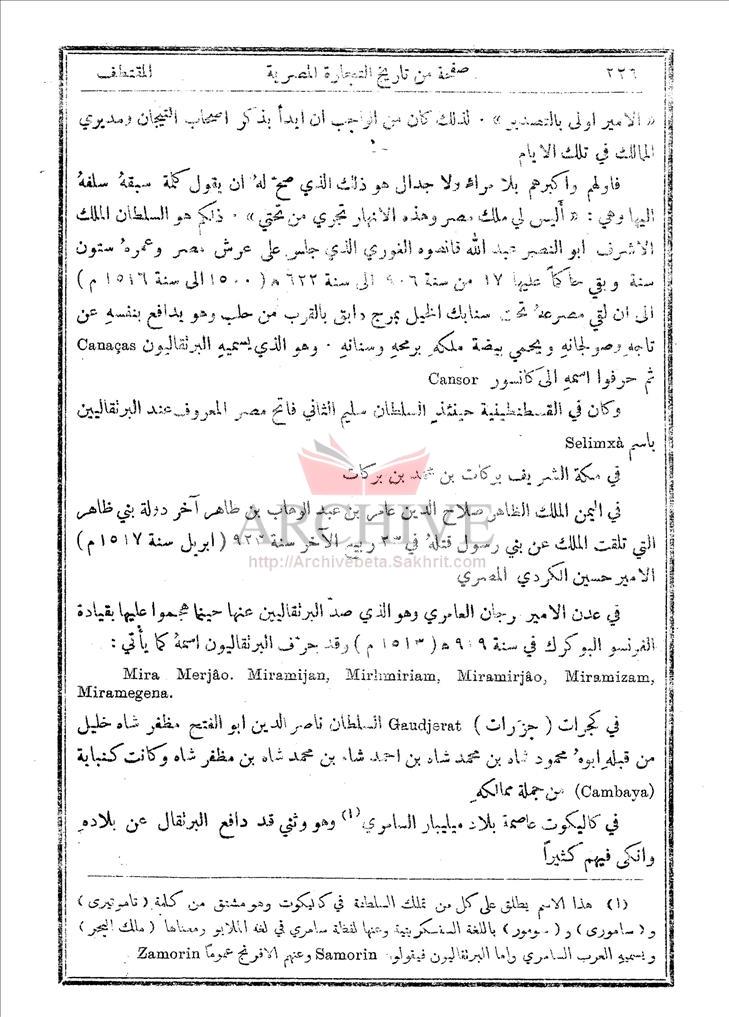 ٢٢٦ صفحة من تاريخ التجارة المصرية المقتطف
« الامير اولى بالتصدير » . لذلك كان من الواجب ان ابدأ بذكر اصحاب التيجان ومديري
الممالك في تلك الايام
فاولهم واكبرهم بلا مراءٍ ولا جدال هو ذلك الذي صحَّ لهُ ان يقول كلمة سبقهُ سلفهُ
اليها وهي : « أليس لي ملك مصر وهذه الانهار تجري من تحتي » . ذلكم هو السلطان الملك
الاشرف ابو النصر عبد الله قانصوه الغوري الذي جلس على عرش مصر وعمرهُ ستون
سنة وبقي حاكماً عليها ١٧ من سنة ٩٠٦ الى سنة ٦٢٢ ه ( ١٥٠٠ الى سنة ١٥١٦ م )
الى ان لقي مصرعهُ تحت سنابك الخيل بمرج دابق بالقرب من حلب وهو يدافع بنفسهِ عن
تاجهِ وصولجانهِ ويحمي بيضة ملكهِ برمحهِ وسنانهِ . وهو الذي يسميهِ البرتقاليون Canaças
ثم حرفوا اسمهِ الى كانسور Cansor
وكان في القسطنطينية حينئذٍ السلطان سليم الثاني فاتح مصر المعروف عند البرتقاليين
باسم Selimxà
في مكة الشريف بركات بن محمد بن بركات
ARCHIVE
في اليمن الملك الظاهر صلاح الدين عامر بن عبد الوهاب بن طاهر آخر دولة بني ظاهر
التي تلقت الملك عن بني رسول قتلهُ في ٢٣ ربيع الآخر سنة ٩٢٣ ( ابريل سنة ١٥١٧ م )
http://Archivebeta.Sakhrit.com
الامير حسين الكردي المصري
في عدن الامير مرجان العامري وهو الذي صدَّ البرتقاليين عنها حينما هجموا عليها بقيادة
الفرنسو البوكرك في سنة ٩١٩ ه ( ١٥١٣ م ) وقد حرَّف البرتقاليون اسمهُ كما يأتي :
Mira Merjâo. Miramijan, Mirhmiriam, Miramirjâo, Miramizam,
Miramegena.
في كجرات ( جزرات ) Gaudjerat السلطان ناصر الدين ابو الفتح مظفر شاه خليل
من قبلهِ ابوهُ محمود شاه بن محمد شاه بن احمد شاه بن محمد شاه بن مظفر شاه وكانت كنباية
(Cambaya) من جملة ممالكهِ
في كاليكوت عاصمة بلاد ميليبار السامري (١) وهو وثني قد دافع البرتقال عن بلادهِ
وانكى فيهم كثيراً
(١) هذا الاسم يطلق على كل من تملك السلطنة في كاليكوت وهو مشتق من كلمة ( تاموتيرى )
و ( سامورى ) و ( مومور ) باللغة السنسكريتية وعنها لفظة سامري في لغة الملابو ومعناها ( ملك البحر )
ويسميهِ العرب السامري واما البرتقاليون فيقولون Samorin وعنهم الافرنج عموماً Zamorin